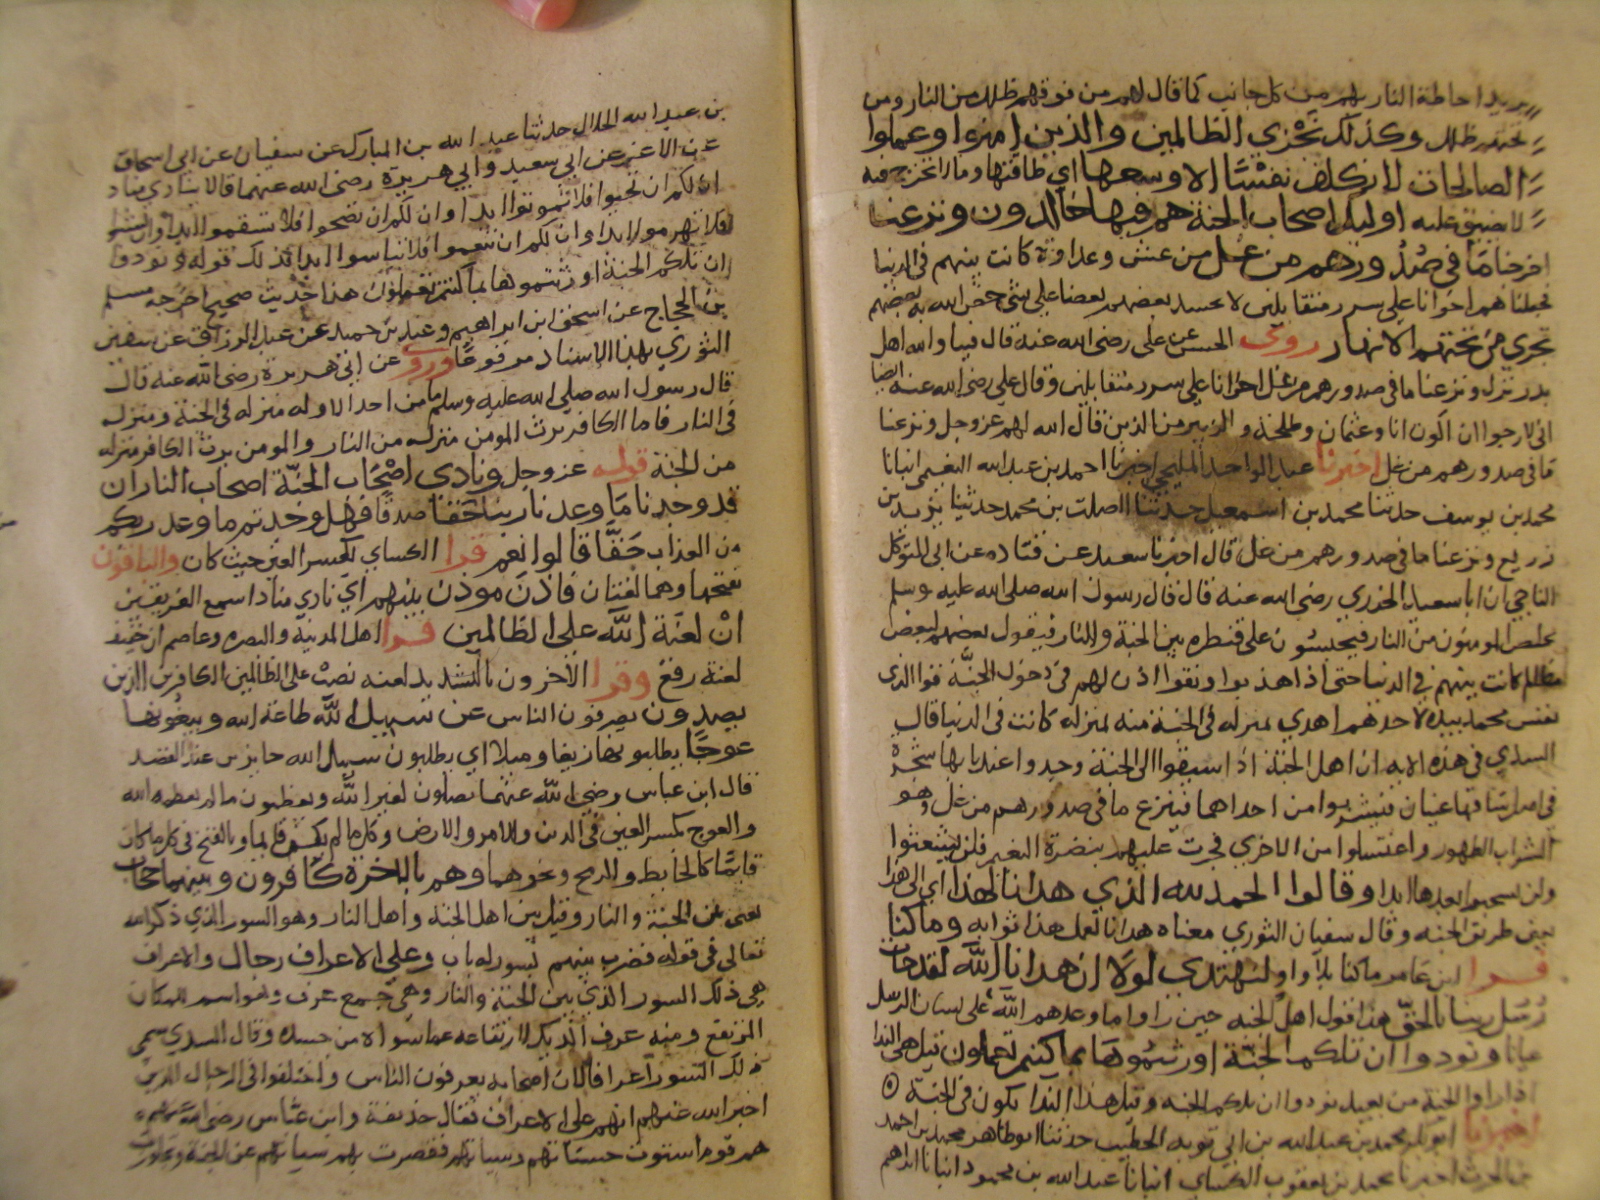 يريد احاطة النار بهم من كل جانب كما قال لهم من فوقهم ظلل من النار ومن
تحتهم ظلل وكذلك نجزي الظالمين والذين امنوا وعملوا
الصالحات لا نكلف نفسا الا وسعها اي طاقتها وما لا تحرج فيه
لا يضيق عليه اوليك اصحاب الجنة هم فيها خالدون ونزعنا
اخرجنا ما في صدورهم من غل من غش وعداوة كانت بينهم في الدنيا
فجعلناهم اخوانا على سرر متقابلين لا يحسد بعضهم بعضا على شي خص الله به بعضهم
تجري من تحتهم الانهار روى الحسن عن علي رضي الله عنه قال فينا والله اهل
بدر نزل ونزعنا ما في صدورهم من غل اخوانا على سرر متقابلين وقال علي رضي الله عنه ايضا
اني لارجوا ان اكون انا وعثمان وطلحة والزبير من الذين قال الله لهم عز وجل ونزعنا
ما في صدورهم من غل اخبرنا عبد الواحد المليحي اخبرنا احمد بن عبد الله النعيمي انبانا
محمد بن يوسف حدثنا محمد بن اسمعيل حدثنا الصلت بن محمد حدثنا يزيد بن
زريع ونزعنا ما في صدورهم من غل قال اخبرنا سعيد عن قتادة عن ابي المتوكل
الناجي ان ابا سعيد الخدري رضي الله عنه قال قال رسول الله صلى الله عليه وسلم
يخلص المومنون من النار فيحبسون على قنطرة بين الجنة والنار فيقول بعضهم لبعض
مظالم كانت بينهم في الدنيا حتى اذا هذبوا ونقوا اذن لهم في دخول الجنة فوالذي
نفس محمد بيده لاحدهم اهدي بمنزله في الجنة منه بمنزله كانت في الدنيا قال
السدي في هذه الاية ان اهل الجنة اذا سيقوا الى الجنة وجدوا عند بابها شجرة
في اصل ساقها عينان فيشربوا من احداهما فينزع ما في صدورهم من غل وهو
الشراب الطهور واغتسلوا من الاخري فجرت عليهم بنضرة النعيم فلن يشعثوا
ولن يشحبوا بعدها ابدا وقالوا الحمد لله الذي هدانا لهذا اي الى هذا
يعني طريق الجنة وقال سفيان الثوري معناه هدانا لعمل هذا ثوابه وما كنا
قرا ابن عامر ما كنا بلا واو لنهتدي لولا ان هدانا الله لقد جات
رسل ربنا بالحق هذا قول اهل الجنة حين راوا ما وعدهم الله على لسان الرسل
عيانا ونودوا ان تلكم الجنة اورثتموها بما كنتم تعملون قيل هي الندا
اذا راوا الجنة من بعيد نودوا ان تلكم الجنة وقيل هذا الندا يكون في الجنة
اخبرنا ابو بكر محمد بن عبد الله بن ابي توبه الخطيب حدثنا ابو طاهر محمد بن احمد
بن الحرث اخبرنا محمد بن يعقوب الكساي انبانا عبد الله بن محمود انبانا ابراهم
بن عبد الله الخلال حدثنا عبد الله بن المبارك عن سفيان عن ابي اسحاق
عن الاغر عن ابي سعيد وابي هريرة رضي الله عنهما قالا ينادي مناد
ان لكم ان تحيوا فلا تموتوا ابدا وان لكم ان تصحوا فلا تسقموا ابدا وان تشبوا
فلا تهرموا ابدا وان لكم ان تنعموا فلا تباسوا ابدا فذلك قوله ونودوا
ان تلكم الجنة اورثتموها بما كنتم تعملون هذا حديث صحيح اخرجه مسلم
بن الحجاج عن اسحق ابن ابراهيم وعبد بن حميد عن عبد الرزاق عن سفين
الثوري بهذا الاسناد مرفوعا وروى عن ابي هريرة رضي الله عنه قال
قال رسول الله صلى الله عليه وسلم ما من احد الا وله منزله في الجنة ومنزله
في النار فاما الكافر يرث المومن منزله من النار والمومن يرث الكافر منزله
من الجنة قوله عز وجل ونادى اصحاب الجنة اصحاب النار ان
قد وجدنا ما وعدنا ربنا حقا صدقا فهل وجدتم ما وعد ربكم
من العذاب حقا قالوا نعم قرا الكساي بكسر العين حيث كان والباقون
بفتحها وهما لغتان فاذن موذن بينهم اي نادي مناد اسمع الفريقين
ان لعنة الله على الظالمين قرا اهل المدينة والبصره وعاصم ان خفيف
لعنة رفع وقرا الاخرون بالتشديد لعنه نصب على الظالمين الكافرين الذين
يصدون يصرفون الناس عن سبيل الله طاعة الله ويبغونها
عوجا يطلبونها زيغا وميلا اي يطلبون سبيل الله جايزين عند القصد
قال ابن عباس رضي الله عنهما يصلون لغير الله ويعظمون ما لم يعظمه الله
والعوج بكسر العين في الدين والامر والارض وكل ما لم يكن قايما وبالفتح في كل ما كان
قايما كالحايط والرمح ونحوهما وهم بالاخرة كافرون وبينهما حجاب
يعني بين الجنة والنار وقيل بين اهل الجنة واهل النار وهو السور الذي ذكر الله
تعالى في قوله فضرب بينهم بسور له باب وعلى الاعراف رجال والاعراف
هي ذلك السور الذي بين الجنة والنار وهي جمع عرف وهو اسم للمكان
المرتفع ومنه عرف الديك لارتفاعه عما سواه من جسده وقال السدي سمي
ذلك السور اعرافا لان اصحابه يعرفون الناس واختلفوا في الرجال الذين
اخبر الله عنهم انهم على الاعراف فقال حذيفة وابن عباس رضي الله عنهم
هم قوم استوت حسناتهم وسياتهم فقصرت بهم سياتهم عن الجنة وتجاوزت